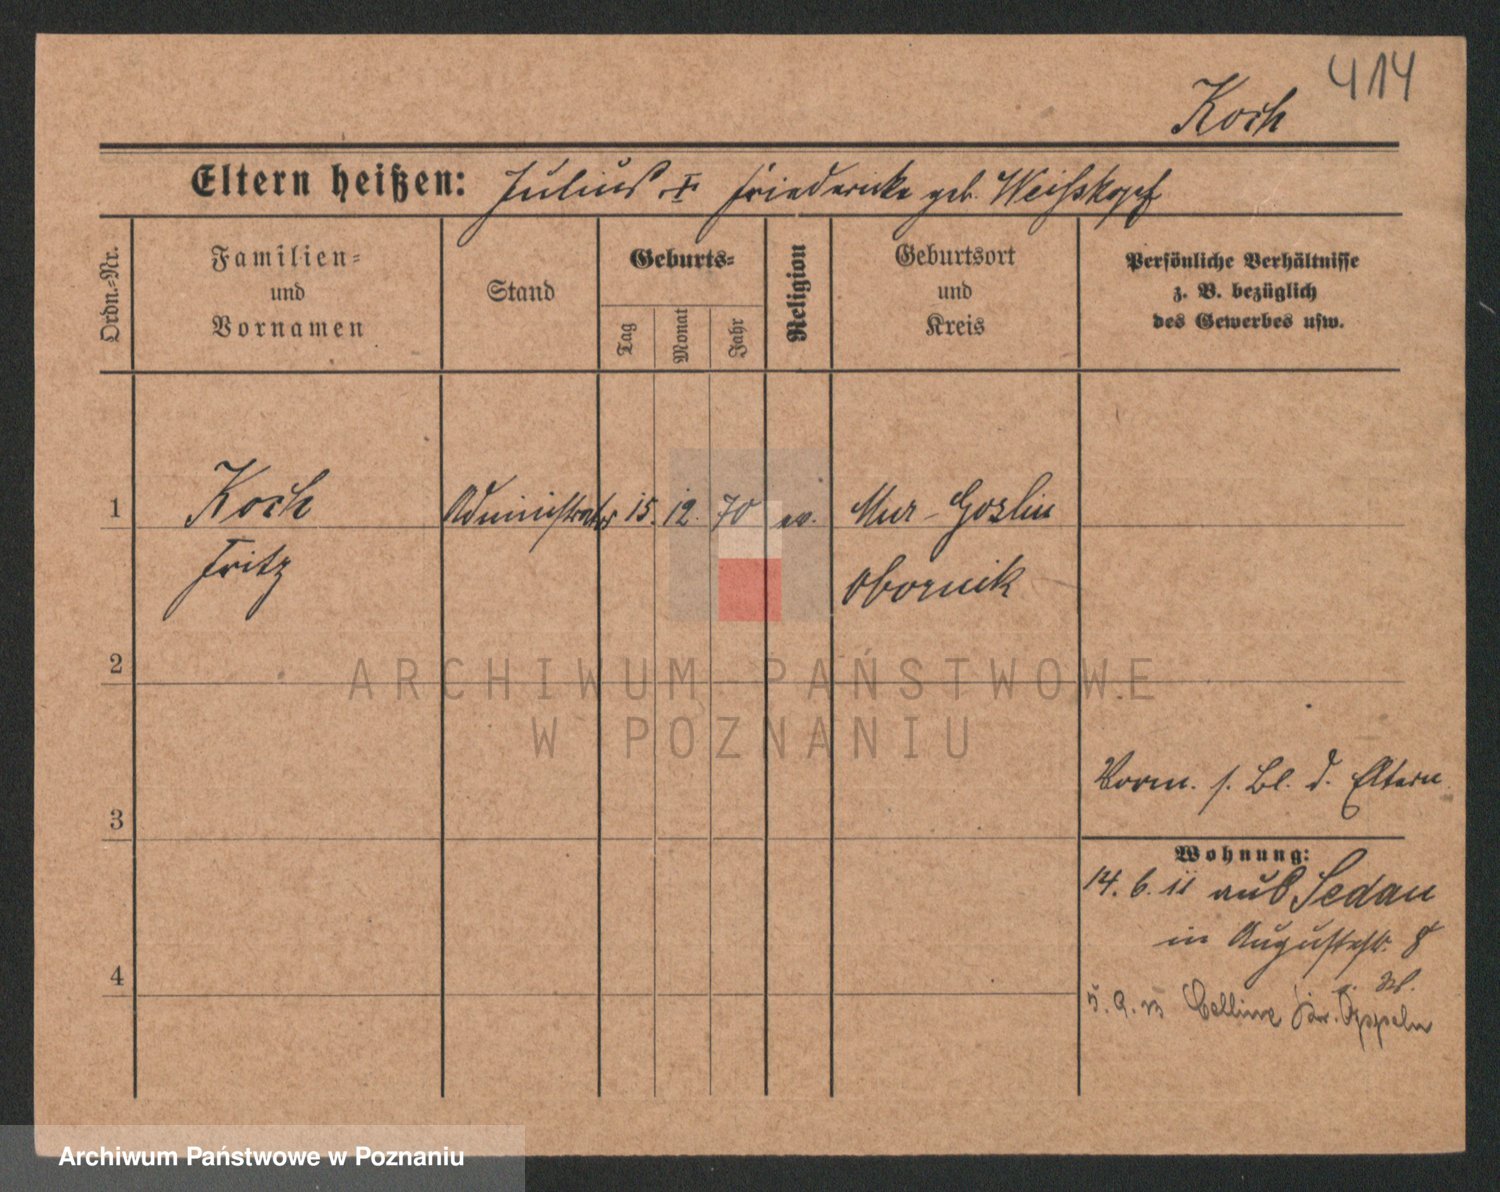 414
Koch
Eltern heißen: Julius u. Friedericke geb. Weißkopf
Ordn.-Nr.
Familien-
und
Vornamen
Stand
Geburts-
Tag
Monat
Jahr
Religion
Geburtsort
und
Kreis
Persönliche Verhältnisse
z. B. bezüglich
des Gewerbes usw.
1 Koch Administrator 15. 12. 70 ev. Mur-Goslin
Fritz Obornik
2
ARCHIWUM PAŃSTWOWE
W POZNANIU
Vorm. s. Bl. d. Eltern
3
Wohnung:
14. 6. 11 aus Sedan
in Augustastr. 8
4
5. 9. 13 Kr. Oppeln
Archiwum Państwowe w Poznaniu